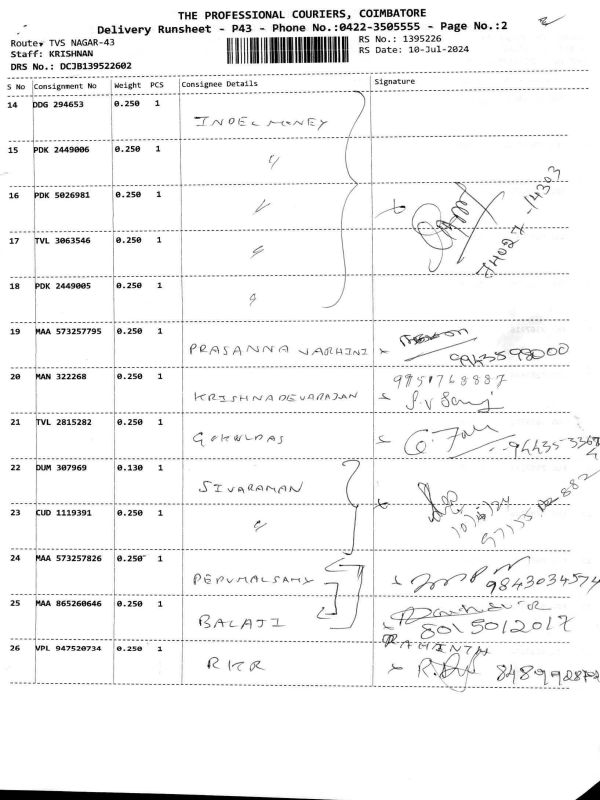 THE PROFESSIONAL COURIERS, COIMBATORE
Delivery Runsheet - P43 - Phone No.:0422-3505555 - Page No.:2
Route: TVS NAGAR-43
RS No.: 1395226
Staff: KRISHNAN
RS Date: 10-Jul-2024
DRS No.: DCJB139522602
S No Consignment No Weight PCS Consignee Details Signature
14 DDG 294653 0.250 1 INDEL MONEY
15 PDK 2449006 0.250 1 "
16 PDK 5026981 0.250 1 "
17 TVL 3063546 0.250 1 "
18 PDK 2449005 0.250 1 "
19 MAA 573257795 0.250 1 PRASANNA VARHINI
20 MAN 322268 0.250 1 KRISHNADEVARAJAN 9951768887
21 TVL 2815282 0.250 1 GOKULDAS
22 DUM 307969 0.130 1 SIVARAMAN
23 CUD 1119391 0.250 1 "
24 MAA 573257826 0.250 1 PERUMALSAMY 9843034574
25 MAA 865260646 0.250 1 BALAJI 8015012017
26 VPL 947520734 0.250 1 RKR